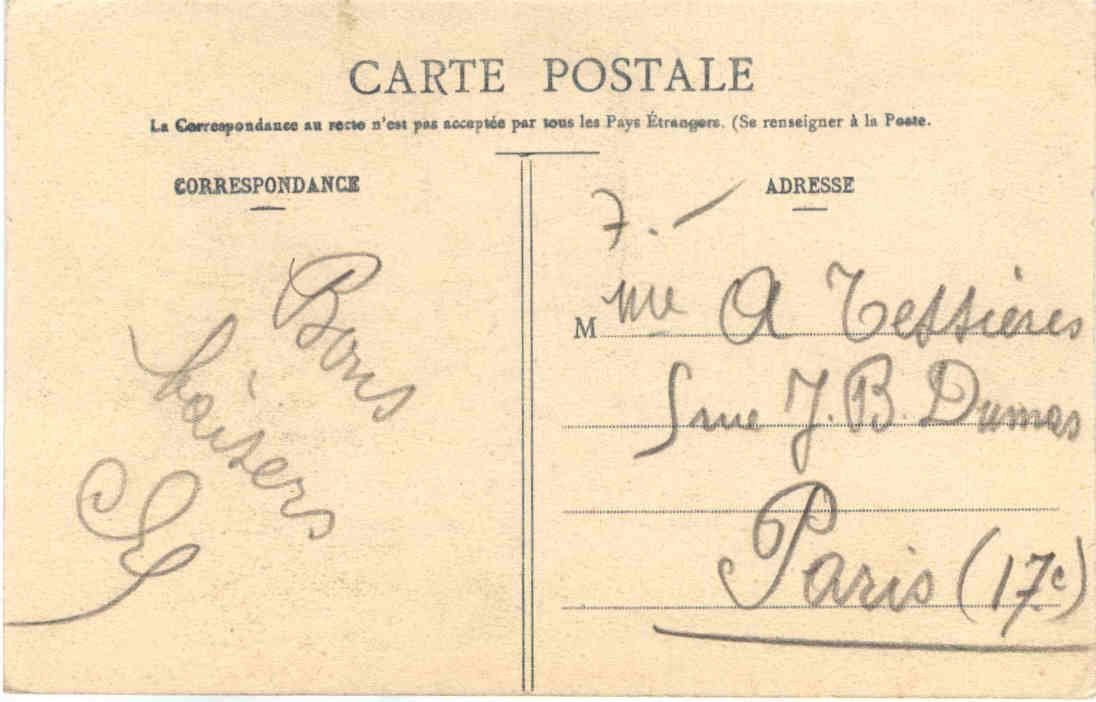 CARTE POSTALE
La Correspondance au recto n'est pas acceptée par tous les Pays Étrangers. (Se renseigner à la Poste.
CORRESPONDANCE
Bons
baisers
ADRESSE
7. —
M me A Tessières
5 rue J. B. Dumas
Paris (17e)